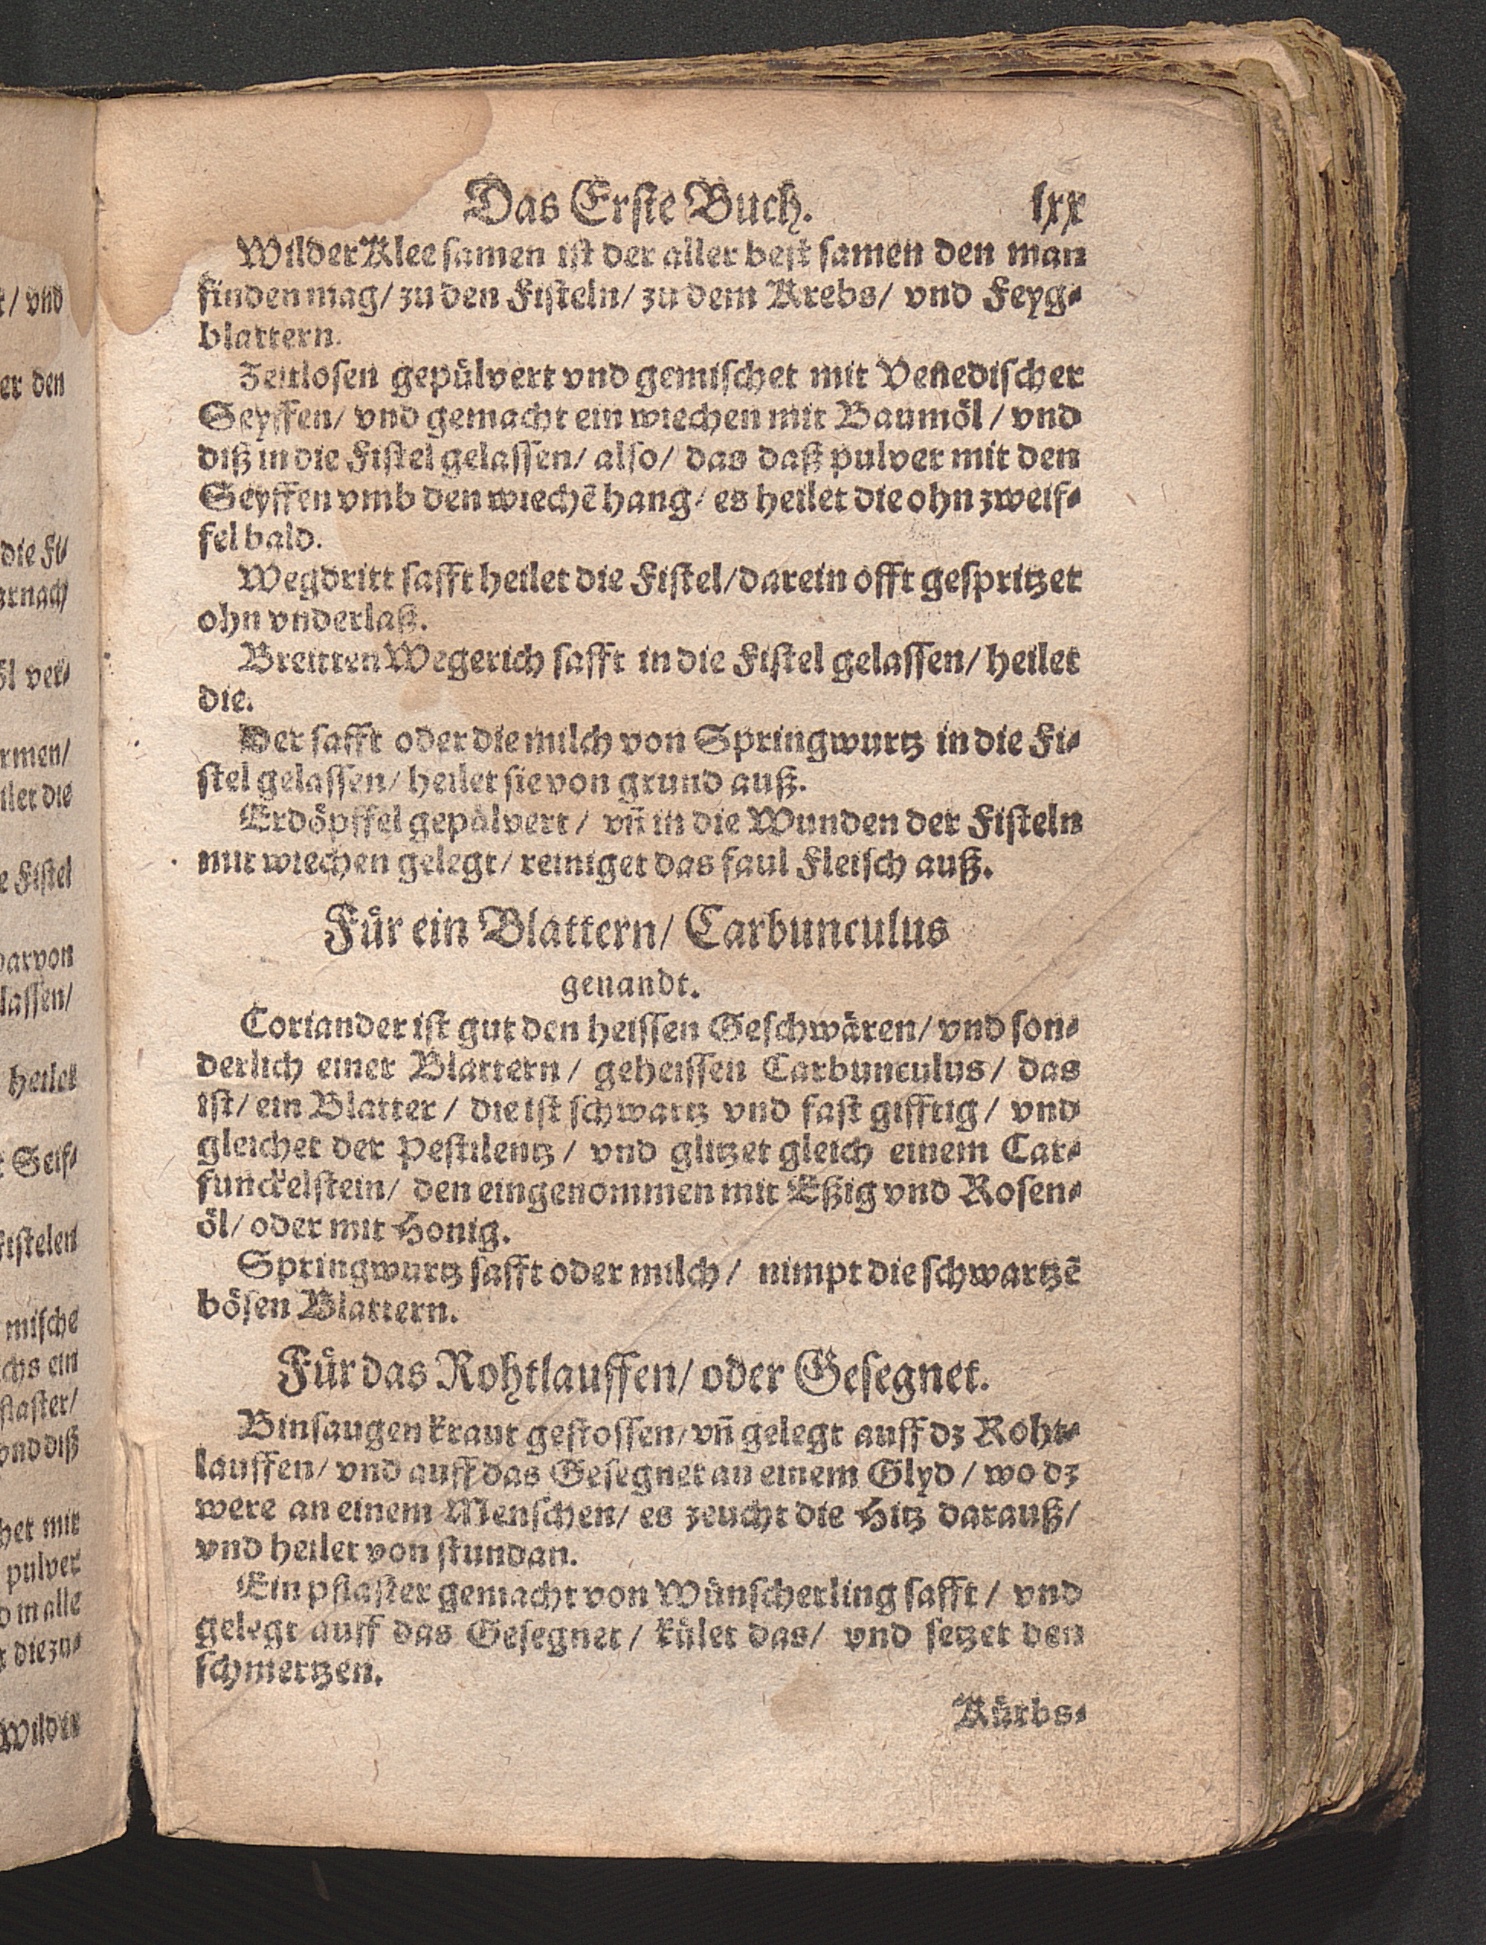 Das Erste Buch. lxx
Wilder Klee samen ist der aller best samen den man
finden mag/ zu den Fisteln/ zu dem Krebs/ vnd Feyg⸗
blattern.
Zeitlosen gepůlvert vnd gemischet mit Venedischer
Seyffen/ vnd gemacht ein wiechen mit Baumöl/ vnd
diß in die Fistel gelassen/ also/ das daß pulver mit den
Seyffen vmb den wiechē hang/ es heilet die ohn zweif⸗
fel bald.
Wegdritt safft heilet die Fistel/ darein offt gespritzet
ohn vnderlaß.
Breitten Wegerich safft in die Fistel gelassen/ heilet
die.
Der safft oder die milch von Springwurtz in die Fi⸗
stel gelassen/ heilet sie von grund auß.
Erdöpffel gepůlvert/ vñ in die Wunden der Fisteln
mit wiechen gelegt/ reiniget das faul Fleisch auß.
Fůr ein Blattern/ Carbunculus
genandt.
Coriander ist gut den heissen Geschwären/ vnd son⸗
derlich einer Blattern/ geheissen Carbunculus/ das
ist/ ein Blatter/ die ist schwartz vnd fast gifftig/ vnd
gleichet der Pestilentz/ vnd glitzet gleich einem Car⸗
funckelstein/ den eingenommen mit Eßig vnd Rosen⸗
öl/ oder mit Honig.
Springwurtz safft oder milch/ nimpt die schwartzē
bösen Blattern.
Fůr das Rohtlauffen/ oder Gesegnet.
Binsaugen kraut gestossen/ vñ gelegt auff dz Roht⸗
lauffen/ vnd auff das Gesegnet an einem Glyd/ wo dz
were an einem Menschen/ es zeucht die Hitz darauß/
vnd heilet von stundan.
Ein pflaster gemacht von Wůnscherling safft/ vnd
gelegt auff das Gesegnet/ kůlet das/ vnd setzet den
schmertzen.
Kůrbs⸗